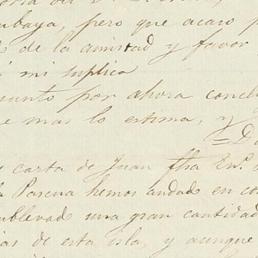 ubaya, pero que acaso p
s de la amistad y favor
mi suplica
sunto por ahora concl
e mas lo estima, y
y carta de Juan fha En.º
la Pascua hemos andado en co
sublevado una gran cantidad
ias de esta isla, y aunque